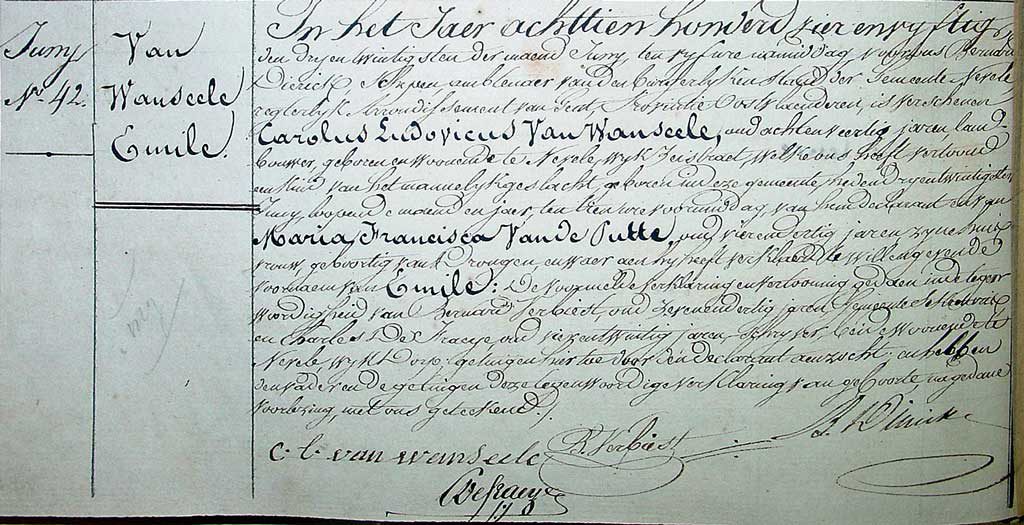 Juny
N.º 42.
Van
Wanseele
Emile.
In het Jaer achttien honderd vier en vyftig,
den dry en twintigsten der maend Juny, ten vyf ure namiddag voor ons Bernard
Dierick, Schepen ambtenaer van den burgerlyken stand der Gemeente Nevele
regterlyk Arrondissement van Gent, Provintie Oostvlaenderen, is verschenen
Carolus Ludovicus Van Wanseele, oud acht en veertig jaren, land-
bouwer, geboren en woonende te Nevele wyk Zeistraet, welke ons heeft vertoond
een kind van het mannelyk geslacht, geboren in deze gemeente, heden dry en twintigsten
Juny, loopende maend en jaer, ten tien ure voormiddag, van hem declarant en van
Maria Francisca Van de Putte, oud vier en dertig jaren zyne huis-
vrouw, geboortig van Drongen, en waer aen hy heeft verklaerd te willen geven de
voornaem van Emile: De voormelde verklaring en vertooning gedaen in de tegen-
woordigheid van Bernard Verbiest, oud zeven en dertig jaren, Gemeente Secretaris
en Charles De Fraeye oud vier en twintig jaren, schryver, beide woonende te
Nevele wyk Dorp, getuigen hier toe door den declarant aenzocht, en hebben
den vader en de getuigen deze tegenwoordige verklaring van geboorte, na gedane
voorlezing, met ons geteekend.
B. Dierick
c. l. van wanseele B. Verbiest
C. Defraeye